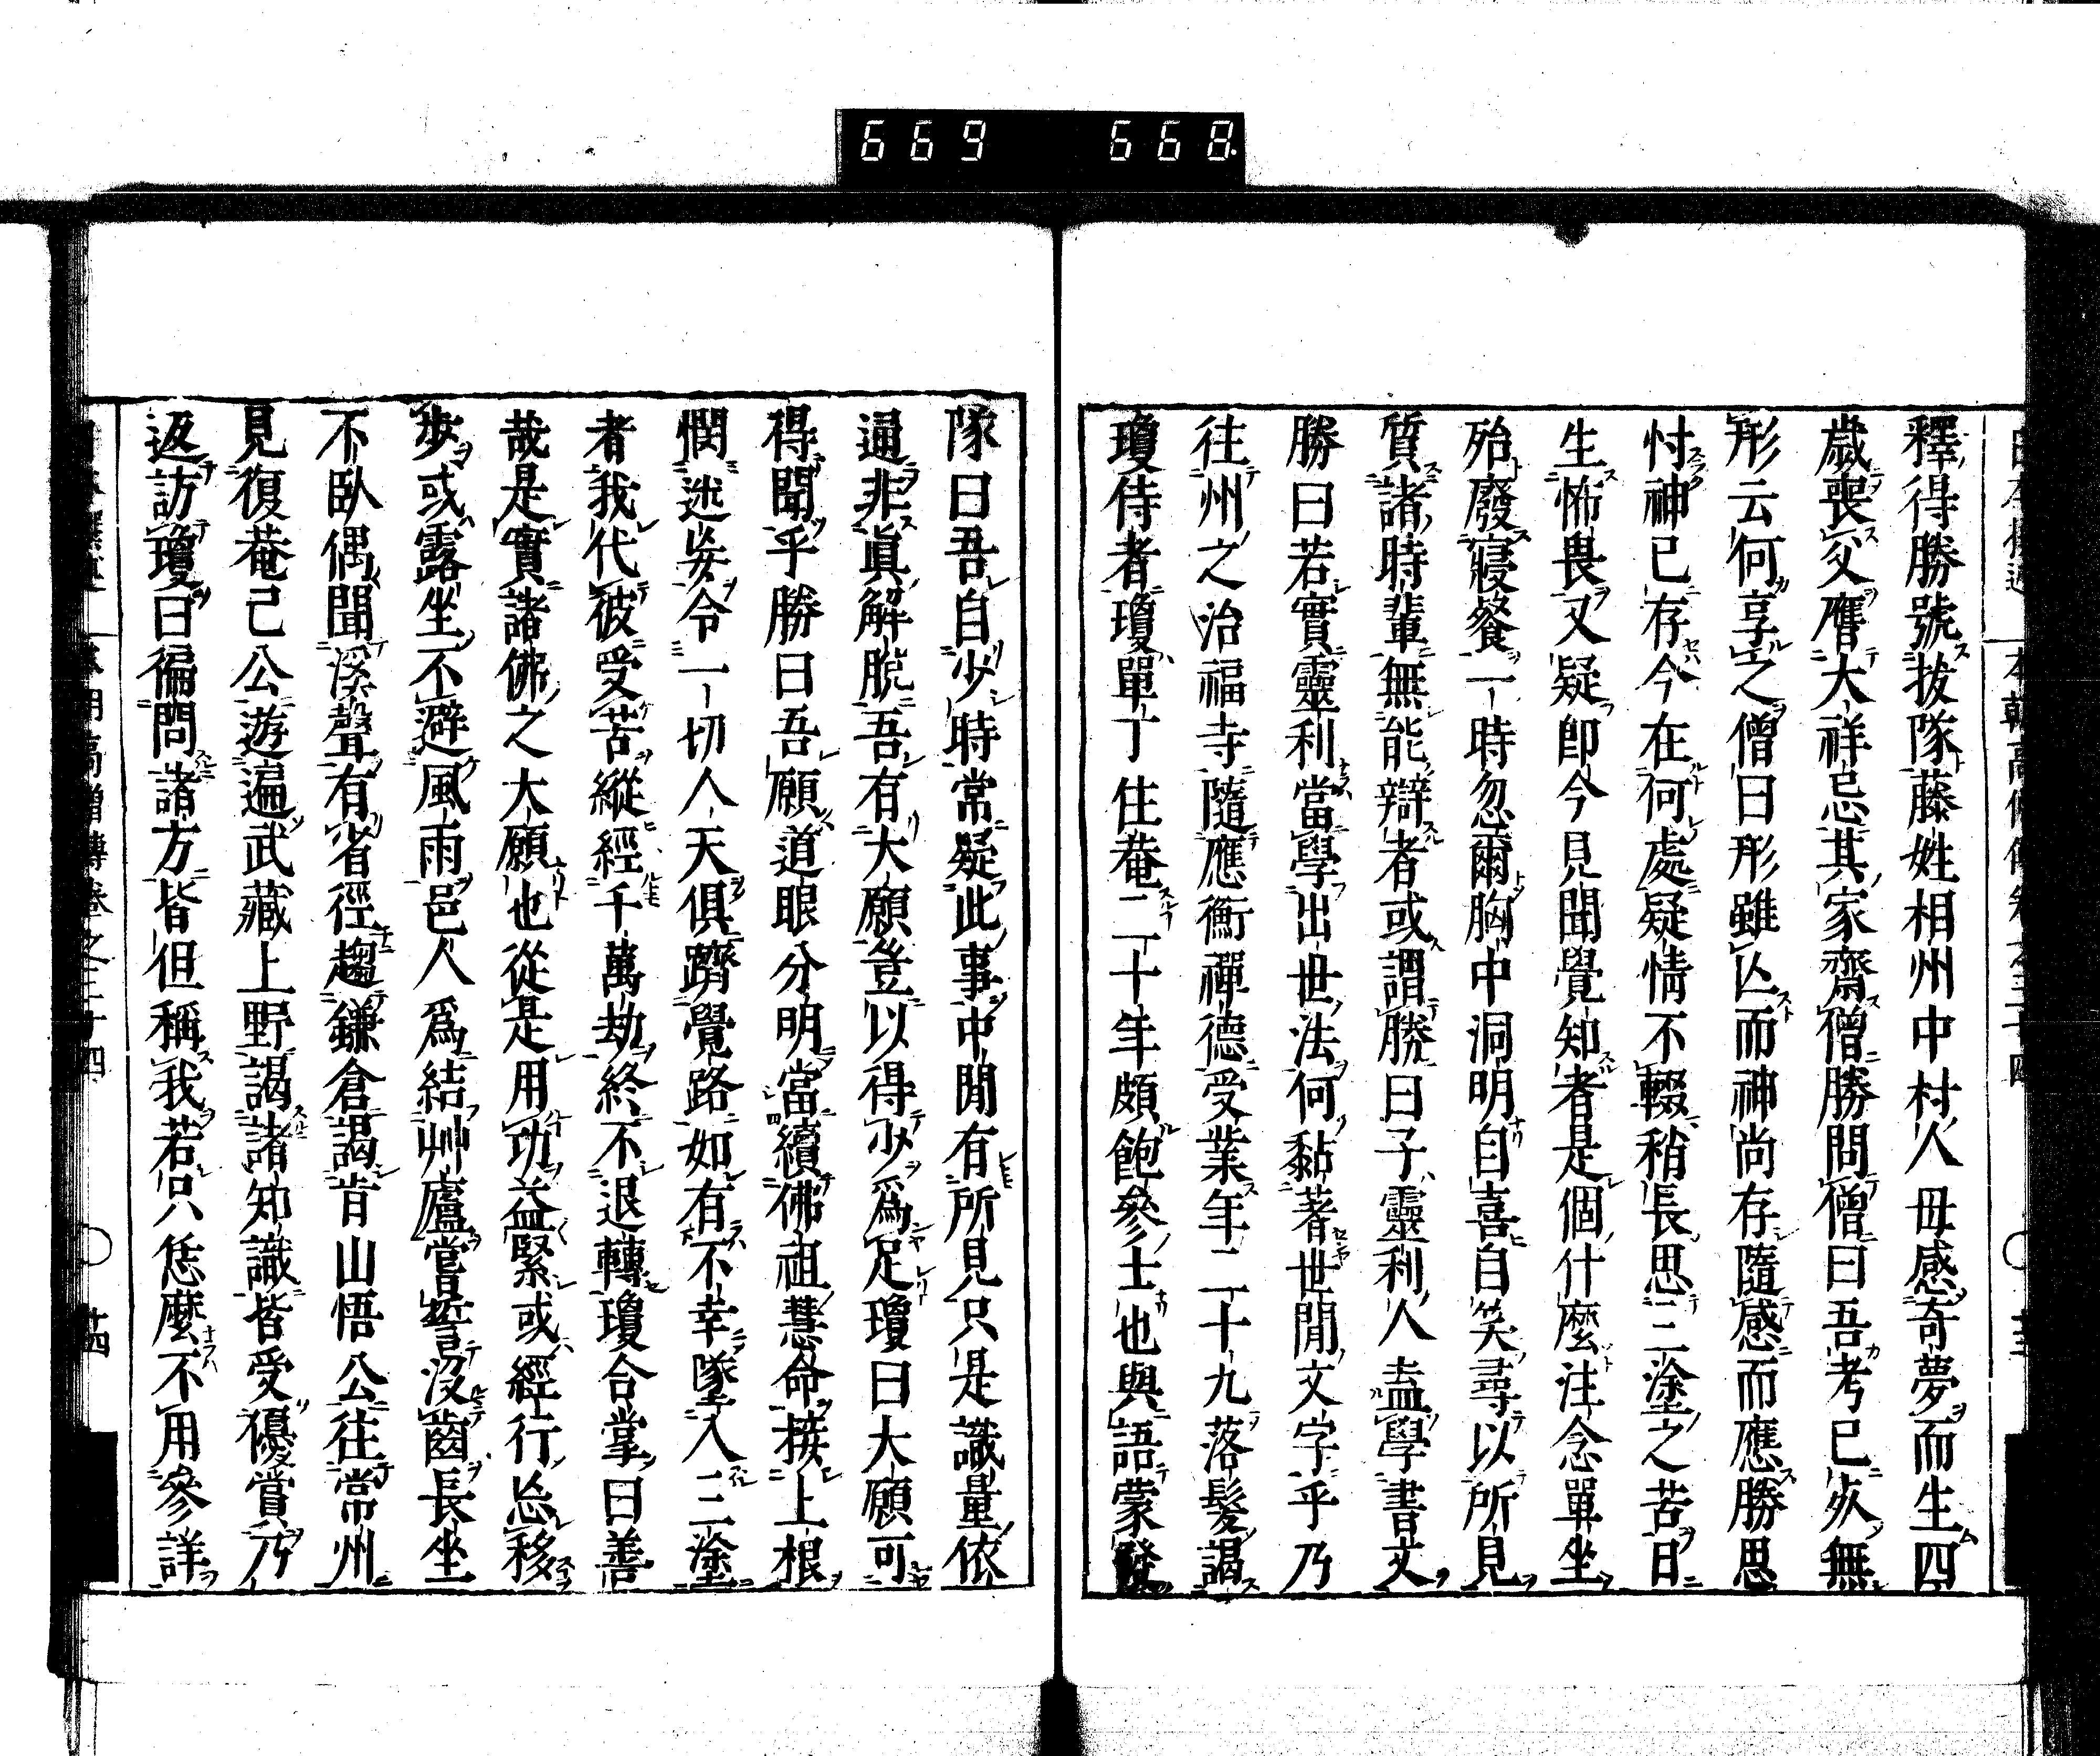 669 668
釋得勝號拔隊藤姓相州中村人母感奇夢而生四
歲喪父鷹大祥忌其家齋僧勝問僧曰吾考已亾無
形云何享之僧曰形雖亾而神尚存隨感而應勝思
忖神已存今在何處疑情不輟稍長思三塗之苦日
生怖畏又疑卽今見聞覺知者是個什麼注念單坐
殆廢寢餐一時忽爾胸中洞明自喜自笑尋以所見
質諸時輩無能辯者或謂勝曰子靈利人盍學書文
勝曰若實靈利當學出世法何黏著世間文字乎乃
往州之治福寺隨應衡禪德受業年二十九落髮謁
瓊侍者瓊單丁住菴二十年頗飽參士也與語蒙發
隊曰吾自少時常疑此事中間有所見只是識量依
通非眞解脫吾有大願豈以得少爲足瓊曰大願可
得聞乎勝曰吾願道眼分明當續佛祖慧命接上根
憫迷妄令一切人天俱躋覺路如有不幸墜入三塗
者我代彼受苦縱經千萬劫終不退轉瓊合掌曰善
哉是實諸佛之大願也從是用功益緊或經行忘移
步或露坐不避風雨邑人爲結艸廬嘗誓沒齒長坐
不臥偶聞溪聲有省徑趨鎌倉謁肯山悟公往常州
見復菴己公遊遍武藏上野謁諸知識皆受優賞乃
返訪瓊曰徧問諸方皆但稱我若只恁麼不用參詳
高僧傳卷之三十四 〇 廿四